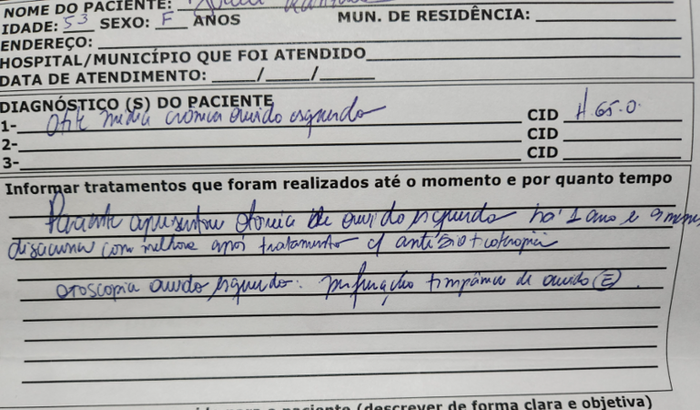 NOME DO PACIENTE:
IDADE: 53 SEXO: F ANOS MUN. DE RESIDÊNCIA:
ENDEREÇO:
HOSPITAL/MUNICÍPIO QUE FOI ATENDIDO
DATA DE ATENDIMENTO: / /
DIAGNÓSTICO (S) DO PACIENTE
1- Otite média crônica ouvido esquerdo CID H.65.0.
2- CID
3- CID
Informar tratamentos que foram realizados até o momento e por quanto tempo
Paciente apresentou otorreia de ouvido esquerdo há 1 ano e meses
com melhora após tratamento c/ antibioticoterapia
otoscopia ouvido esquerdo: perfuração timpânica de ouvido (E).
paciente (descrever de forma clara e objetiva)